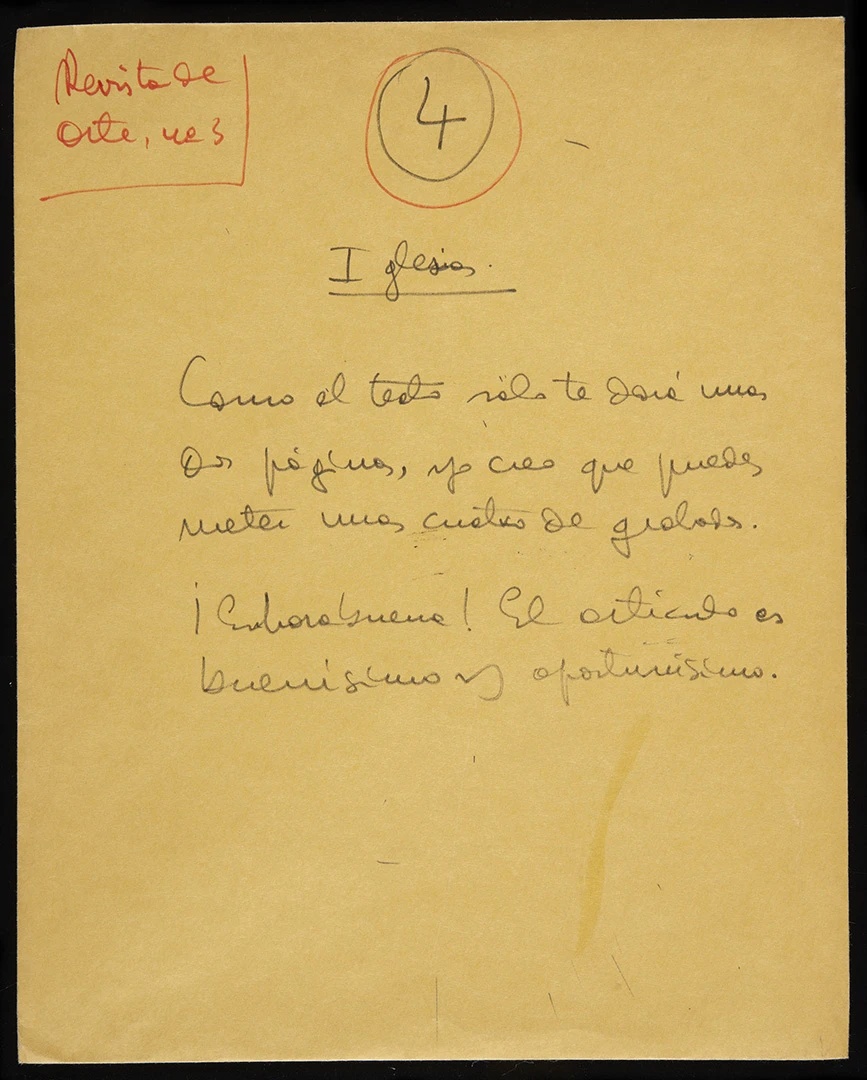 Revista de
Arte, no 3
4
Iglesias.
Como el texto sólo te dará unas
dos páginas, yo creo que puedes
meter unas cuatro de grabados.
¡Enhorabuena! El artículo es
buenísimo y oportunísimo.